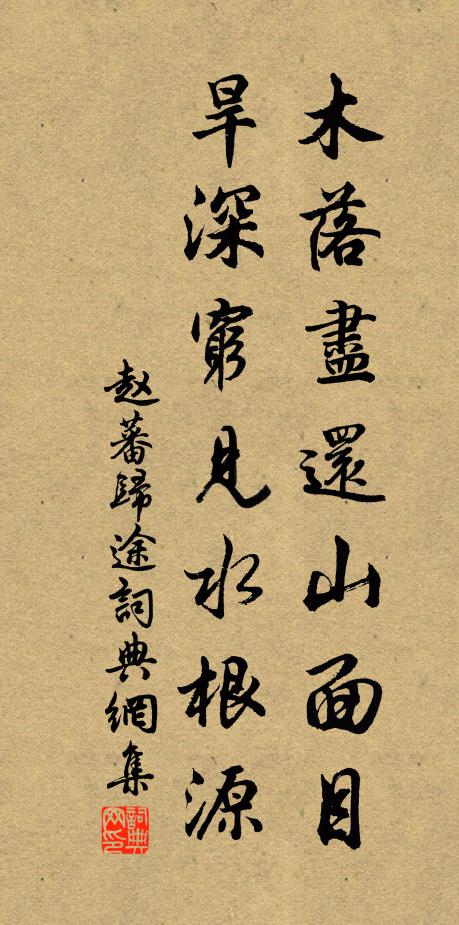 木落盡還山面目
旱深窮見水根源
赵蕃歸途詞典網集
詞典网印